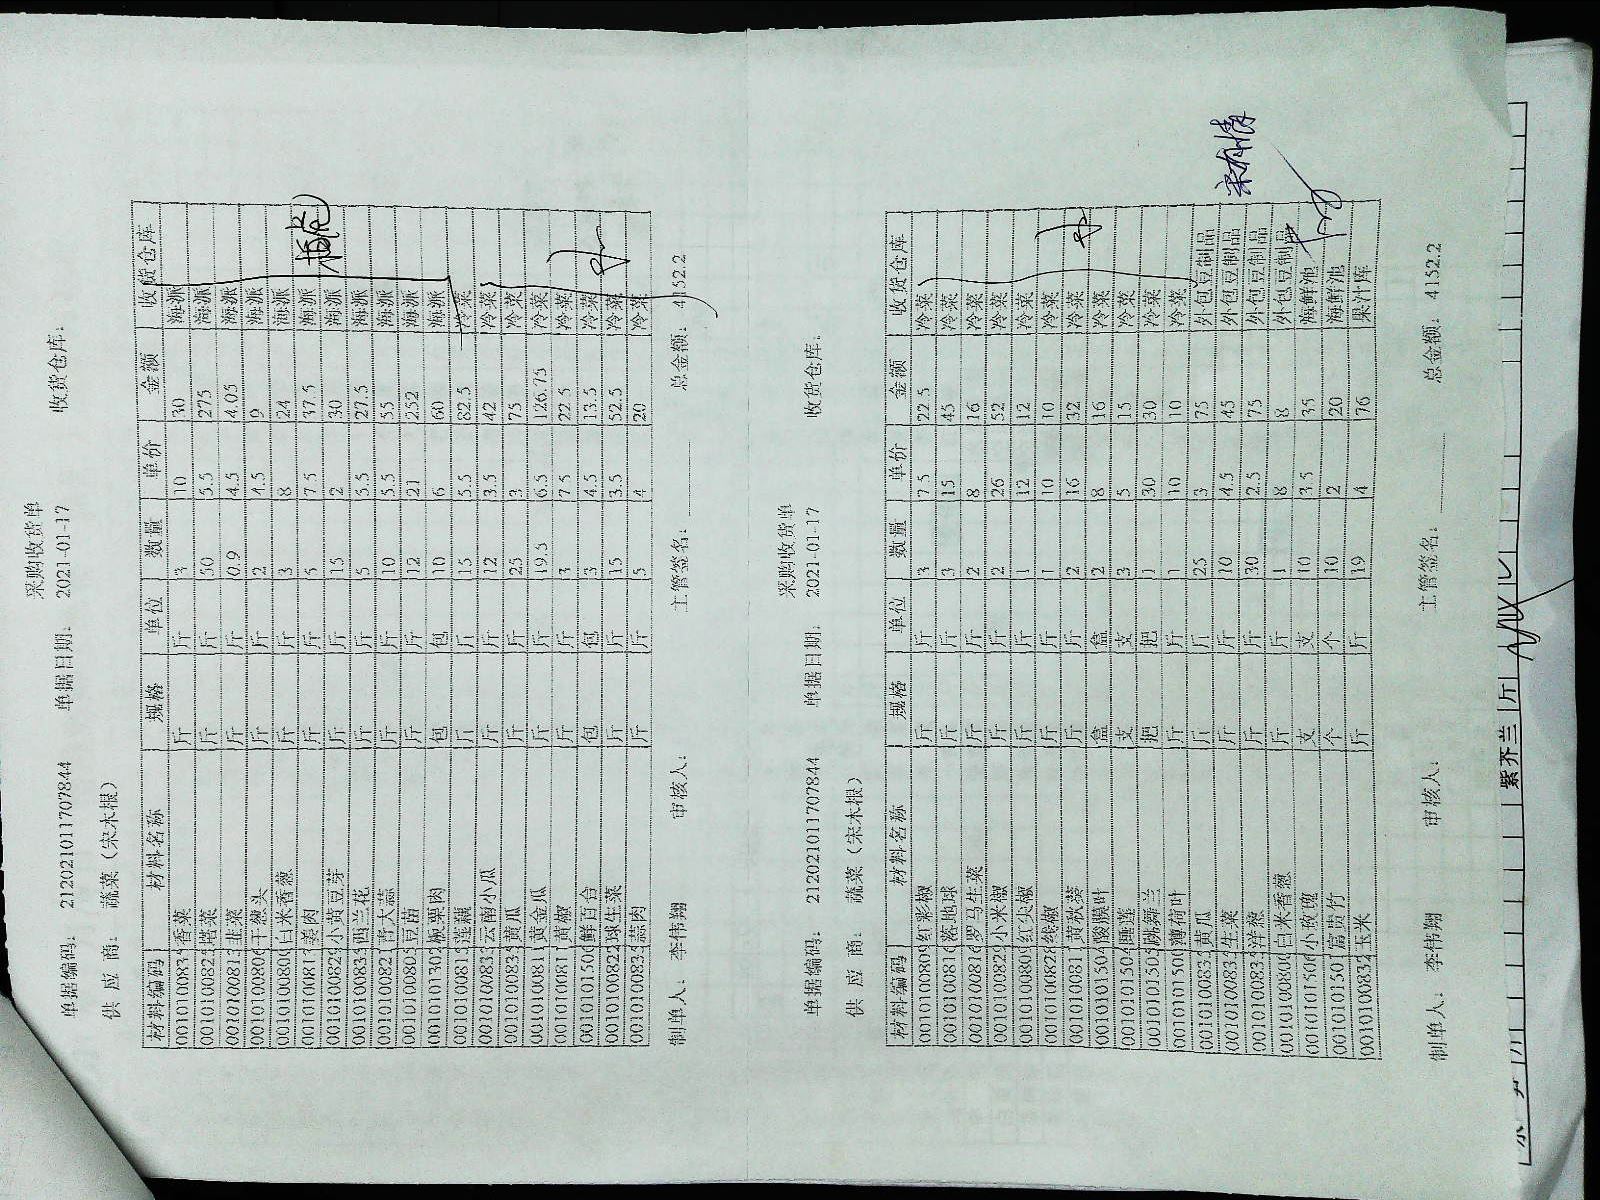 采购收货单
单据编码： 212021011707844 单据日期： 2021-01-17 收货仓库：
供 应 商： 蔬菜（宋木根）
材料编码 材料名称 规格 单位 数量 单价 金额 收货仓库
00101008 香菜 斤 斤 3 10 30 海派
001010082 塔菜 斤 斤 50 5.5 275 海派
001010081 韭菜 斤 斤 0.9 4.5 4.05 海派
001010080 干葱头 斤 斤 2 4.5 9 海派
001010080 白米香葱 斤 斤 3 8 24 海派
001010081 姜肉 斤 斤 5 7.5 37.5 海派
001010082 小黄豆芽 斤 斤 15 2 30 海派
001010083 西兰花 斤 斤 5 5.5 27.5 海派
001010082 青大蒜 斤 斤 10 5.5 55 海派
001010080 豆苗 斤 斤 12 21 252 海派
001010130 板栗肉 包 包 10 6 60 海派
001010081 莲藕 斤 斤 15 5.5 82.5 冷菜
001010083 云南小瓜 斤 斤 12 3.5 42 冷菜
001010083 黄瓜 斤 斤 25 3 75 冷菜
001010081 黄金瓜 斤 斤 19.5 6.5 126.75 冷菜
001010081 黄椒 斤 斤 3 7.5 22.5 冷菜
001010150 鲜百合 包 包 3 4.5 13.5 冷菜
001010082 球生菜 斤 斤 15 3.5 52.5 冷菜
001010083 蒜肉 斤 斤 5 4 20 冷菜
制单人： 李伟翔 审核人： 主管签名： 总金额： 4152.2
采购收货单
单据编码： 212021011707844 单据日期： 2021-01-17 收货仓库：
供 应 商： 蔬菜（宋木根）
材料编码 材料名称 规格 单位 数量 单价 金额 收货仓库
001010080 红彩椒 斤 斤 3 7.5 22.5 冷菜
001010081 落地球 斤 斤 3 15 45 冷菜
001010081 罗马生菜 斤 斤 2 8 16 冷菜
001010082 小米椒 斤 斤 2 26 52 冷菜
001010080 红尖椒 斤 斤 1 12 12 冷菜
001010082 线椒 斤 斤 1 10 10 冷菜
001010081 黄秋葵 斤 斤 2 16 32 冷菜
001010150 酸膜叶 盒 盒 2 8 16 冷菜
001010150 睡莲 支 支 3 5 15 冷菜
001010150 跳舞兰 把 把 1 30 30 冷菜
001010150 薄荷叶 斤 斤 1 10 10 冷菜
001010083 黄瓜 斤 斤 25 3 75 外包豆制品
001010083 生菜 斤 斤 10 4.5 45 外包豆制品
001010083 洋葱 斤 斤 30 2.5 75 外包豆制品
001010080 白米香葱 斤 斤 1 8 8 外包豆制品
001010150 小玫瑰 支 支 10 3.5 35 海鲜池
001010150 富贵竹 个 个 10 2 20 海鲜池
001010083 玉米 斤 斤 19 4 76 果汁库
制单人： 李伟翔 审核人： 主管签名： 总金额： 4152.2
紫芥兰 斤